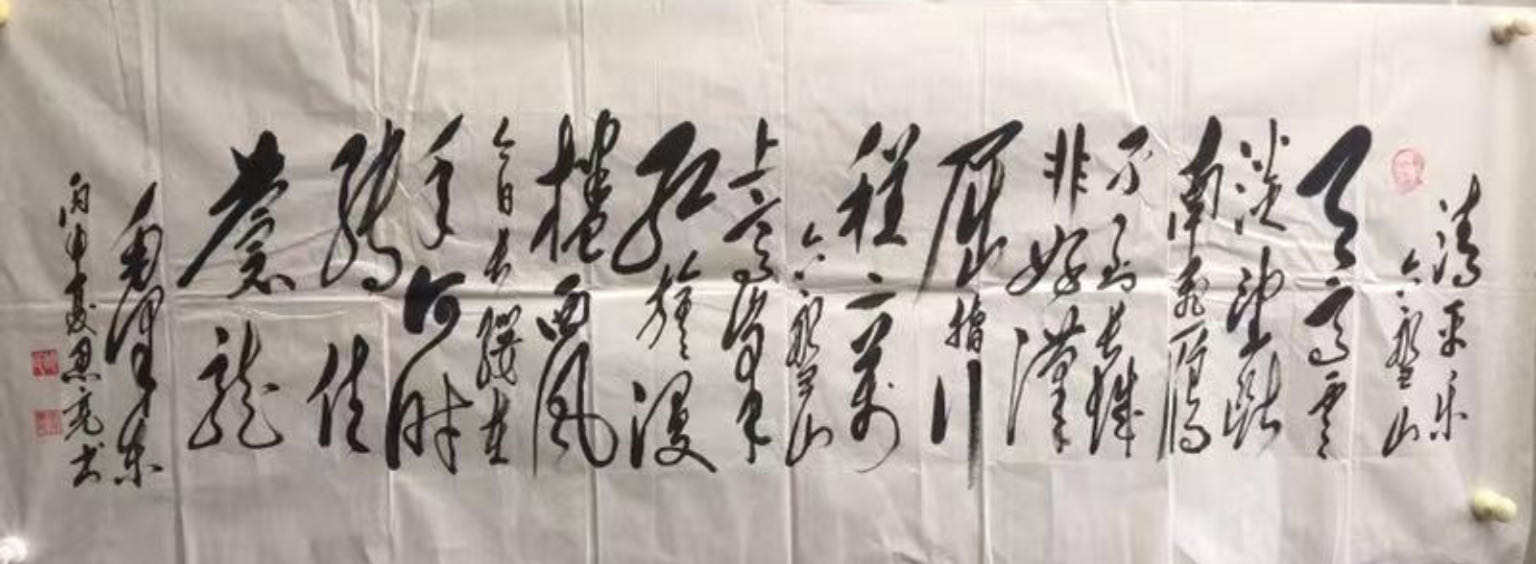 清平乐
六盘山
天高云
淡望断
南飞雁
不到长城
非好漢
屈指行
程二万
六盘山
上高峰
红旗漫
捲西风
今日长缨在
手何时
缚住
苍龍
毛泽东
丙申夏恩亮书